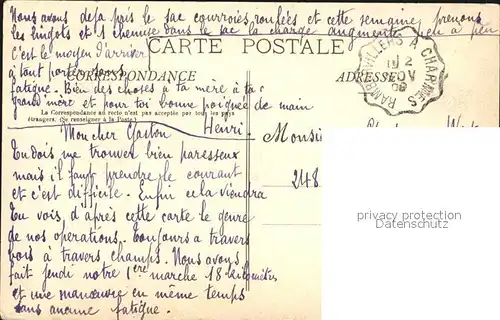 Nous avons déja pris le sac courroies roulées et cette semaine, prenons
les lingots et 1 chemise dans le sac la charge augmente peu à peu
c'est le moyen d'arriver
CARTE POSTALE
RAMBERVILLERS A CHARMES
2
NOV
08
CORRESPONDANCE
ADRESSE
fatigue. Bien des choses à ta mère à ta
grand mère et pour toi bonne poignée de main
La Correspondance au recto n'est pas acceptée par tous les pays
étrangers. (Se renseigner à la Poste.)
Henri.
Mon cher Gaston
Monsie
Tu dois me trouver bien paresseux
mais il faut prendre le courant
et c'est difficile. Enfin cela viendra
248
Tu vois, d'après cette carte le genre
de nos opérations. Toujours à travers
bois à travers champs. Nous avons
fait jeudi notre 1ère marche 18 kilomètres
et une manœuvre en même temps
sans aucune fatigue.
privacy protection
for our customers